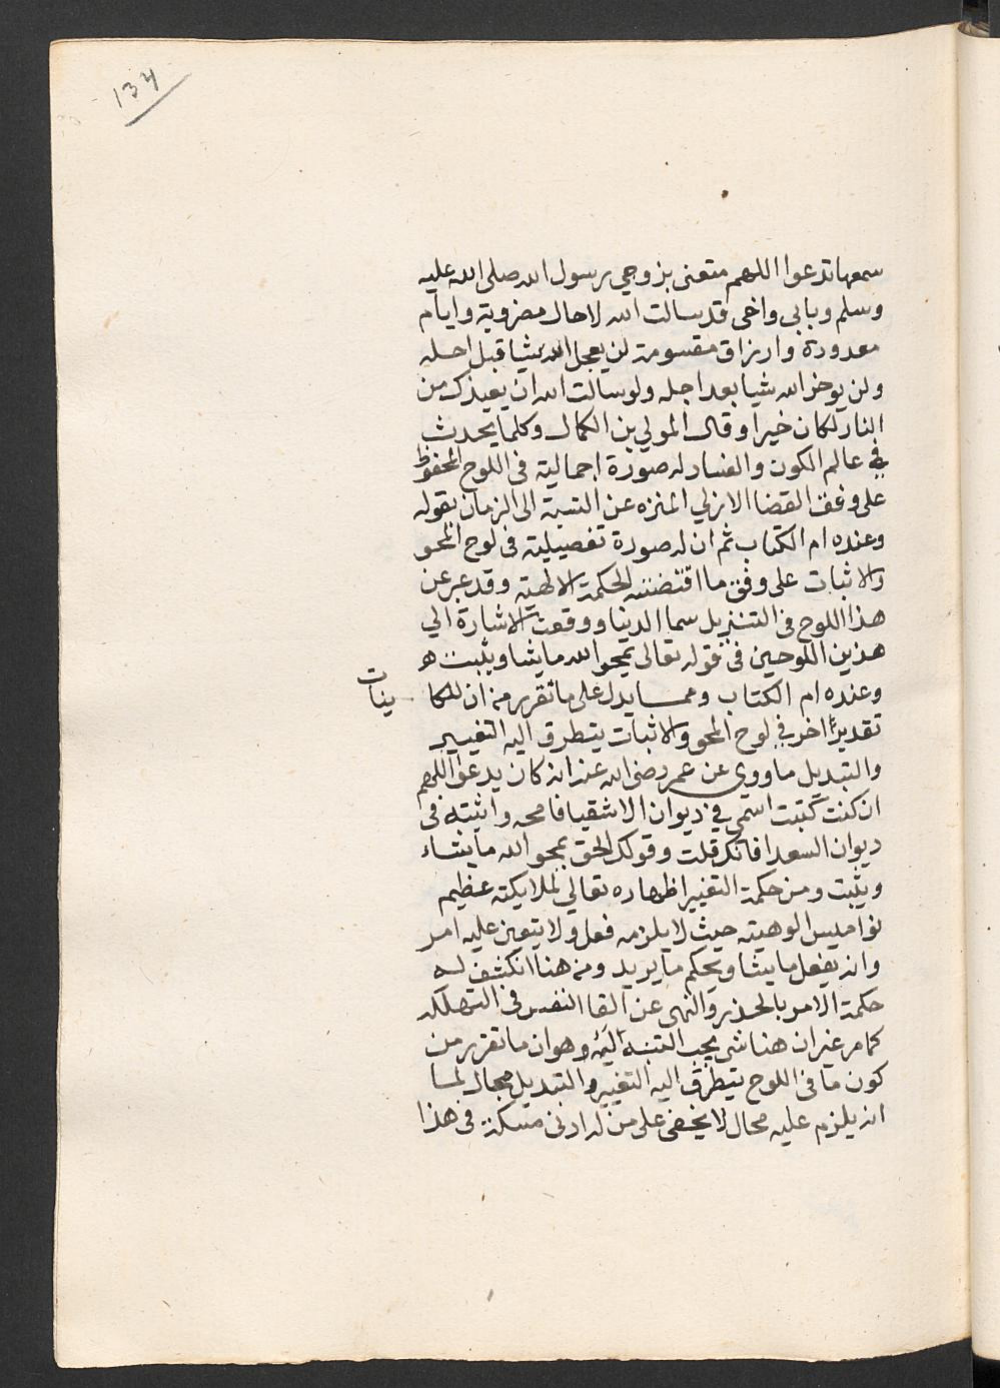 134
سمعها تدعوا اللهم متعنى بزوجي رسول الله صلى الله عليه
وسلم وبابى واخى قد سالت الله لاجال مضروبة وايام
معدودة وارزاق مقسومة لن يعجل الله شيا قبل اجله
ولن يوخر الله شيا بعد اجله ولو سالت الله ان يعيذك من
النار لكان خيرا وقال المولي بن الكمال وكلما يحدث
في عالم الكون والفساد له صورة اجمالية فى اللوح المحفوظ
على وفق القضا الازلي المنزه عن النسبة الى الزمان بقوله
وعنده ام الكتاب ثم ان له صورة تفصيلية فى لوح المحو
والاثبات على وفق ما اقتضته الحكمة الالهية وقد عبر عن
هذا اللوح فى التنزيل سما الدنيا ووقعت الاشارة الي
هذين اللوحين فى قوله تعالى يمحوا الله ما يشا ويثبت
وعنده ام الكتاب ومما يدل على ما تقرر من ان للكا ينات
تقديرا اخر في لوح المحو والاثبات يتطرق اليه التغيير
والتبديل ما ووى عن عمر رضى الله عنه انه كان يدعوا اللهم
ان كنت كتبت اسمي في ديوان الاشقيا فامحه واثبته فى
ديوان السعدا فانك قلت وقولك الحق يمحو الله ما يشاء
ويثبت ومن حكمة التغيير اظهاره تعالي لملايكته عظيم
نواميس الوهيته حيث لا يلزمه فعل ولا يتعين عليه امر
وانه يفعل ما يشا ويحكم ما يريد ومن هنا انكشف له
حكمة الامر بالحذر والنهى عن القا النفس فى التهلكه
كما مر غير ان هنا شى يجب التنبه اليه وهو ان ما تقرر من
كون ما فى اللوح يتطرق اليه التغيير والتبديل مجال لما
انه يلزم عليه محال لا يخفى على من له ادنى مسكة فى هذا